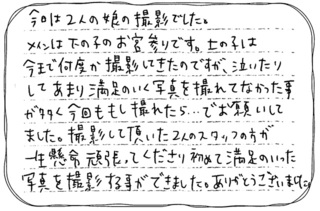 今回は2人の娘の撮影でした。
メインは下の子のお宮参りです。上の子は
今まで何度か撮影してきたのですが、泣いたり
してあまり満足のいく写真を撮れてなかった事
が多く今回ももし撮れたら…でお願いして
ました。撮影して頂いた2人のスタッフの方が
一生懸命頑張ってくださり初めて満足のいった
写真を撮影する事ができました。ありがとうございました。